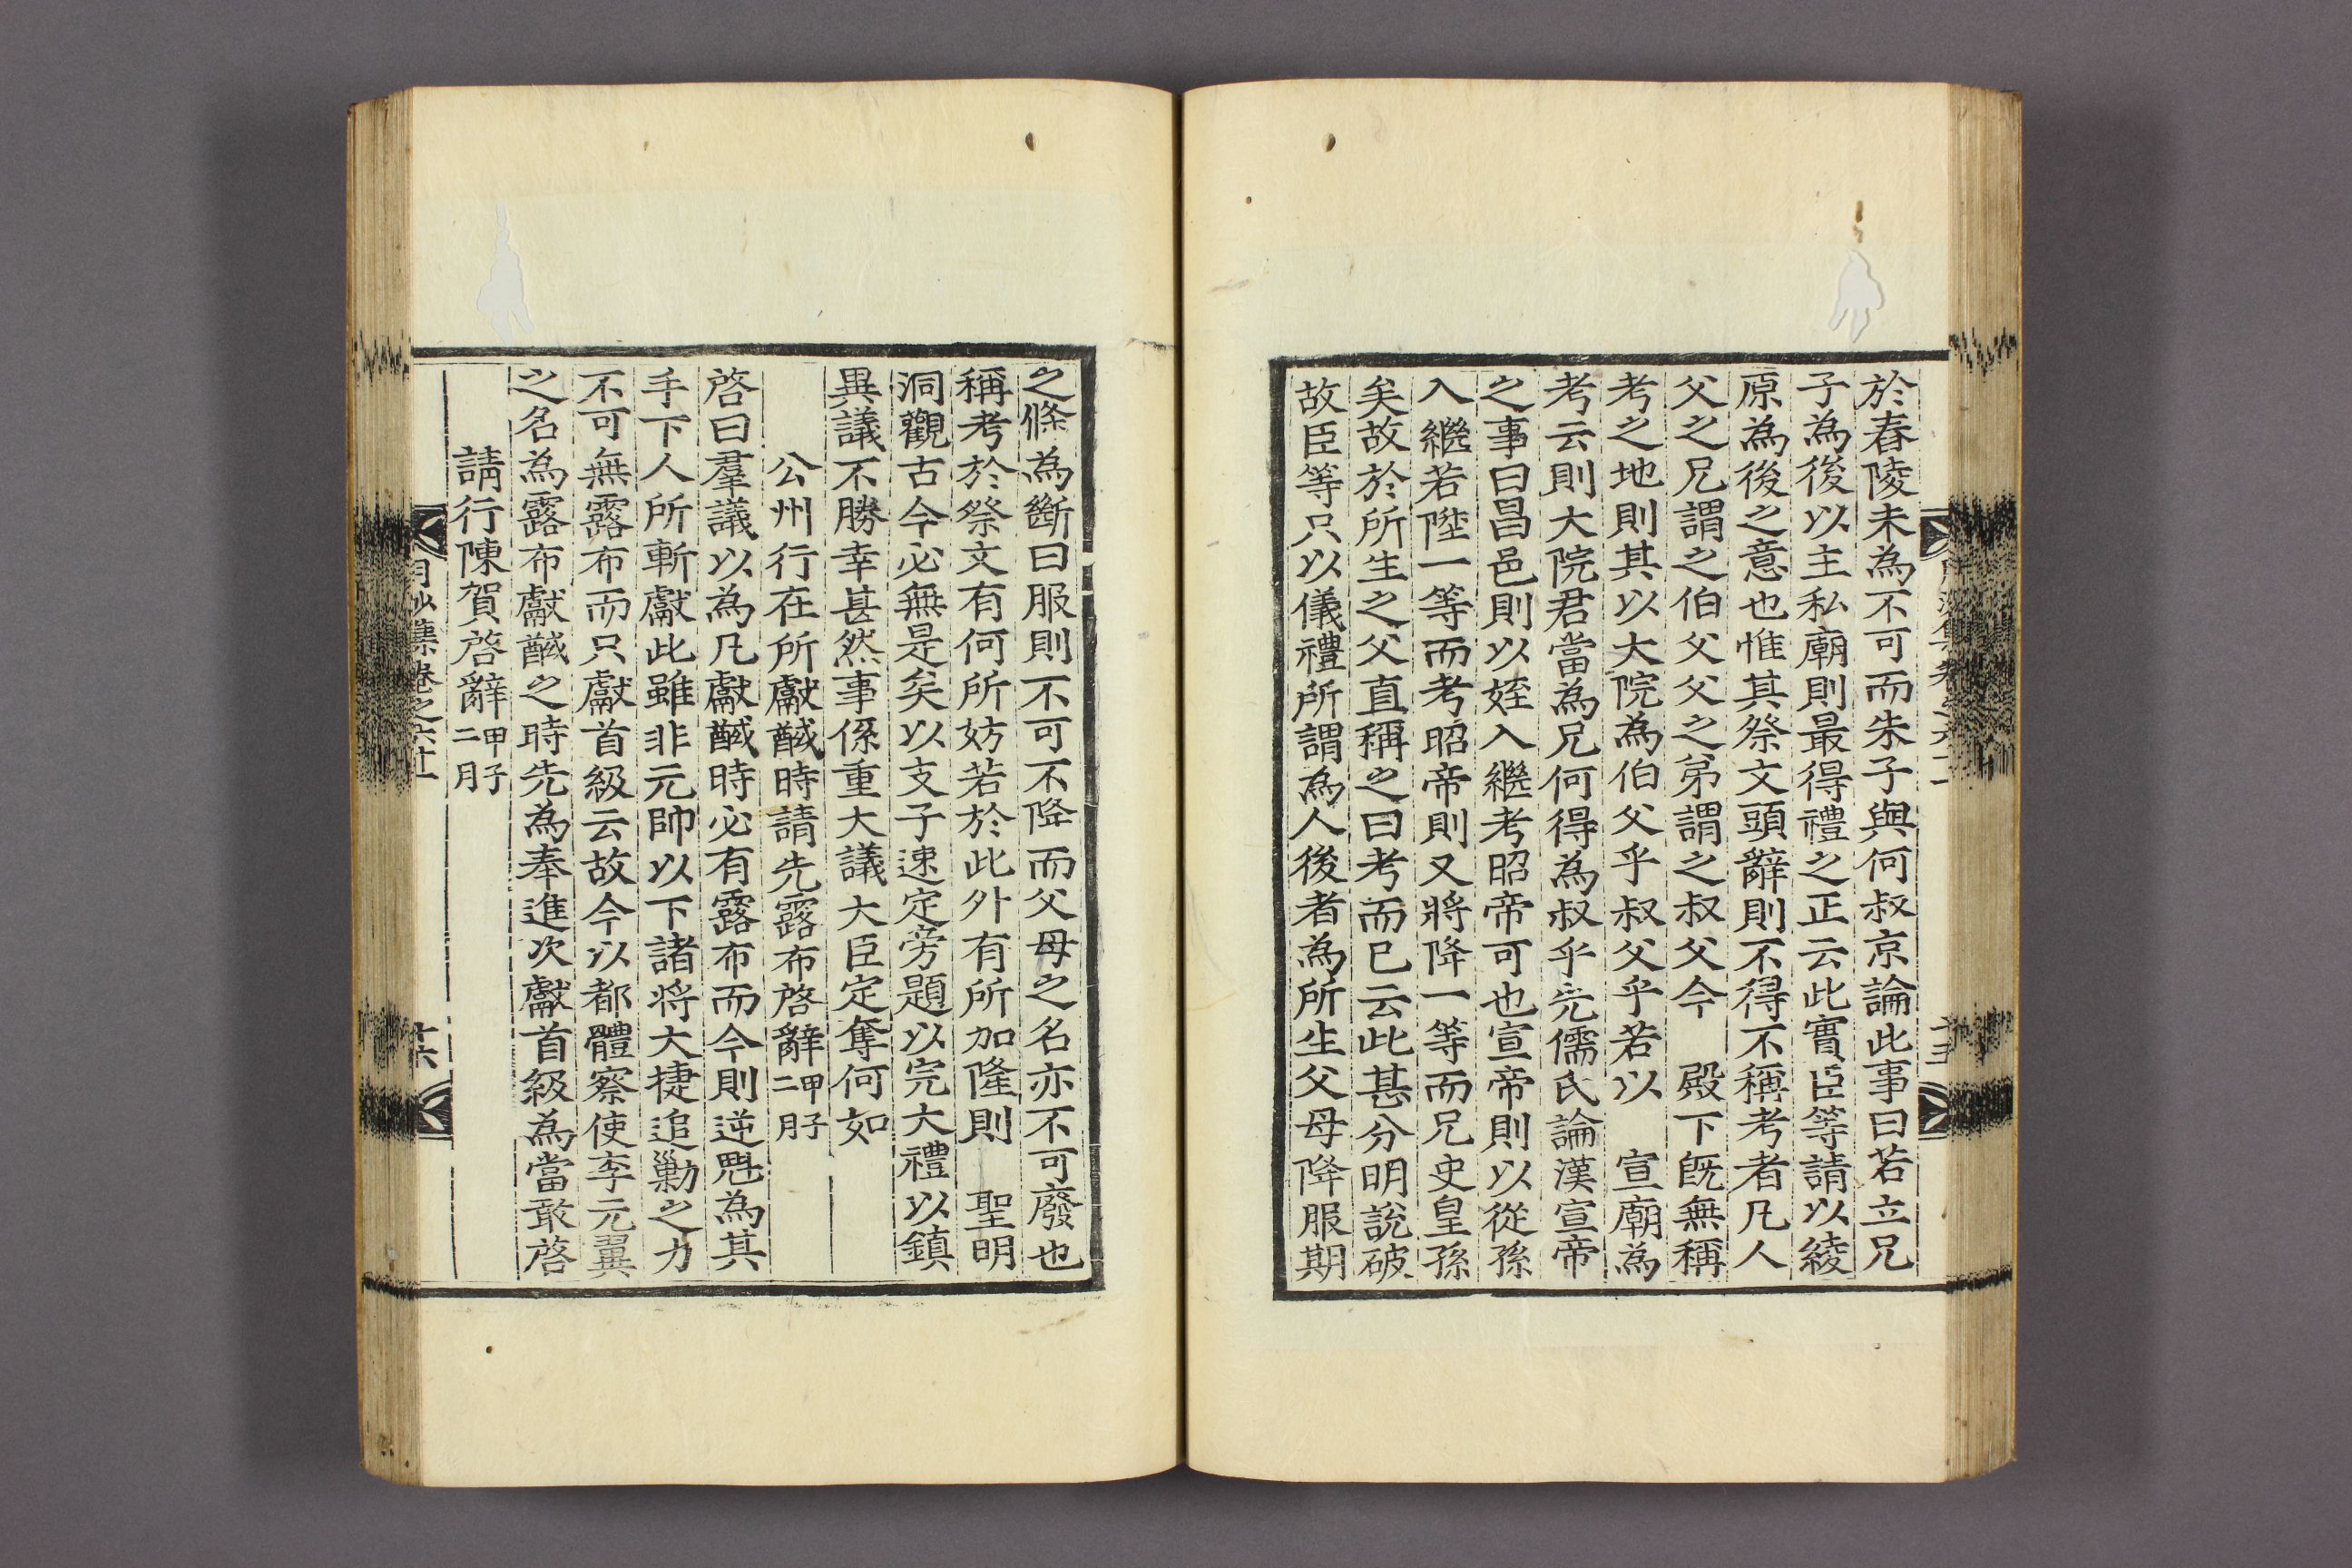 於舂陵未為不可而朱子與何叔京論此事曰若立兄
子為後以主私廟則最得禮之正云此實臣等請以綾
原為後之意也惟其祭文頭辭則不得不稱考者凡人
父之兄謂之伯父父之弟謂之叔父今 殿下旣無稱
考之地則其以大院為伯父乎叔父乎若以 宣廟為
考云則大院君當為兄何得為叔乎先儒氏論漢宣帝
之事曰昌邑則以姪入繼考昭帝可也宣帝則以從孫
入繼若陞一等而考昭帝則又將降一等而兄史皇孫
矣故於所生之父直稱之曰考而已云此甚分明說破
故臣等只以儀禮所謂為人後者為所生父母降服期
之條為斷曰服則不可不降而父母之名亦不可廢也
稱考於祭文有何所妨若於此外有所加隆則 聖明
洞觀古今必無是矣以支子速定旁題以完大禮以鎮
異議不勝幸甚然事係重大議大臣定奪何如
公州行在所獻馘時請先露布啓辭甲子二月
啓曰羣議以為凡獻馘時必有露布而今則逆魁為其
手下人所斬獻此雖非元帥以下諸將大捷追勦之力
不可無露布而只獻首級云故今以都體察使李元翼
之名為露布獻馘之時先為奉進次獻首級為當敢啓
請行陳賀啓辭甲子二月
月沙集卷之六十一
十六